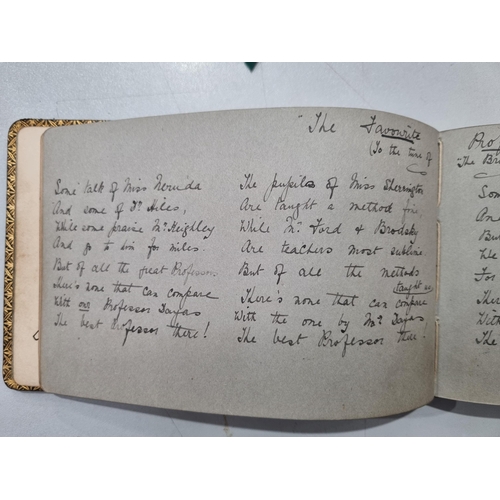 "The Favourite
(To the tune of
Some talk of Miss Neruda
And some of Dr Hiles,
While some praise Mr Keighley
And go to him for miles.
But of all the great Professors
There's none that can compare
With our Professor Dayas
The best Professor there!
The pupils of Miss Sherrington
Are taught a method fine
While Mr Ford & Brodsky
Are teachers most sublime
But of all the methods
taught us
There's none that can compare
With the one by Mr Dayas
The best Professor there.
Prof
"The Bri
Som
One
But
We
For
The
With
The